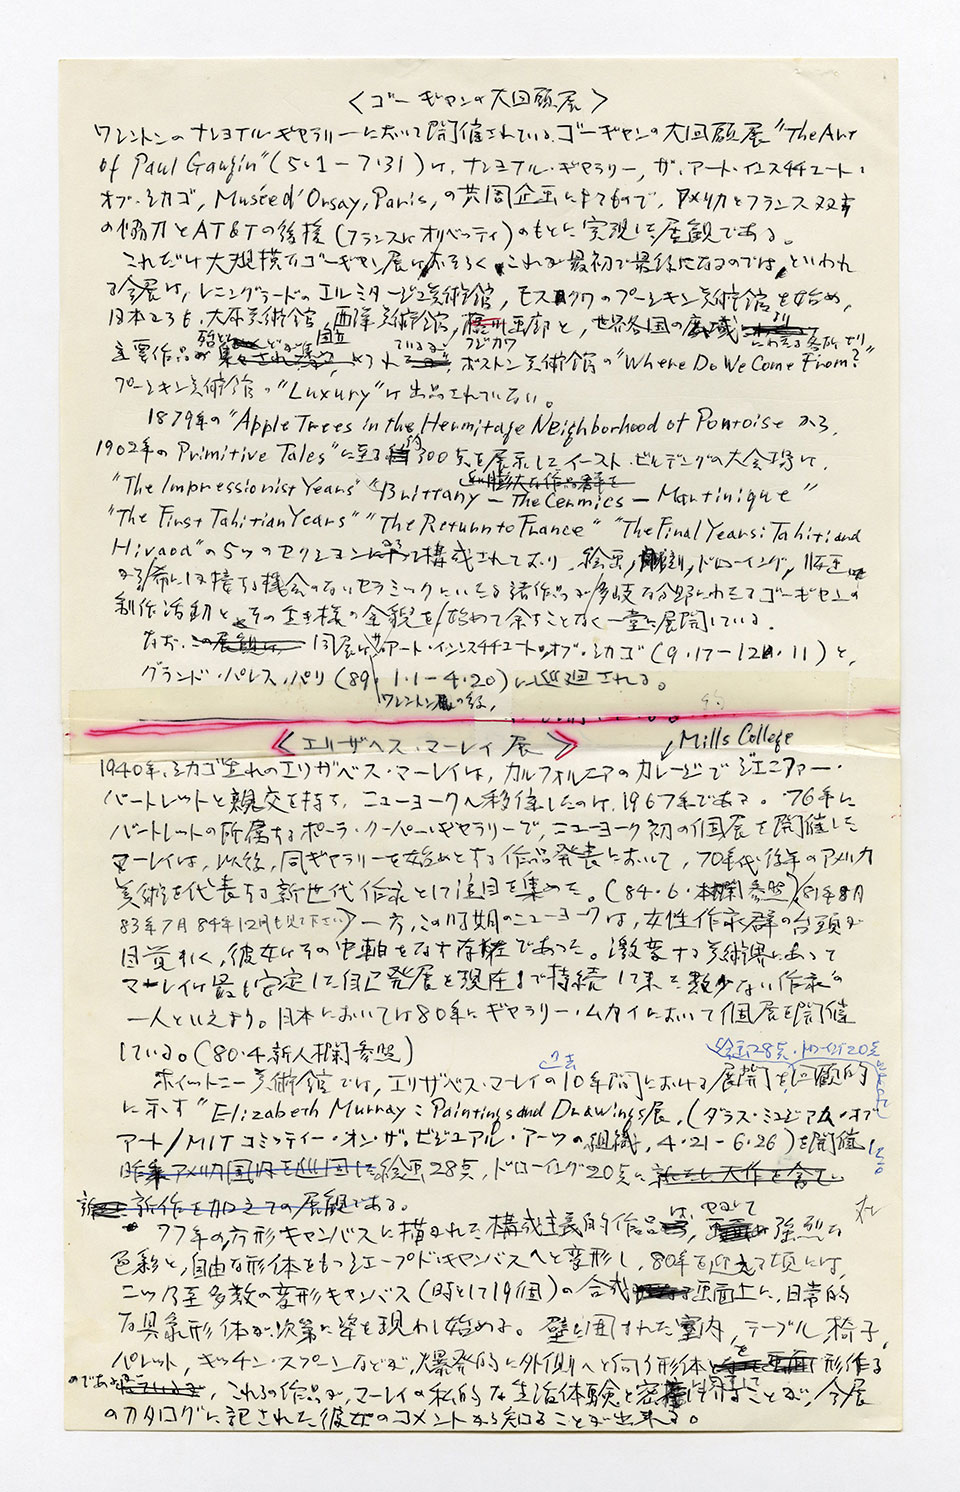 〈ゴーギャンの大回顧展〉
ワシントンのナショナル・ギャラリーにおいて開催されているゴーギャンの大回顧展 "The Art
of Paul Gaugin" (5・1−7・31)は、ナショナル・ギャラリー, ザ・アート・インスチチュート・
オブ・シカゴ, Musée d'Orsay, Paris, の共同企画によるもので, アメリカとフランス双方
の協力とAT&Tの後援(フランスはオリベッティ)のもとに実現した展観である。
これだけ大規模なゴーギャン展はおそらくこれが最初で最後になるのでは, といわれ
る今展は, レニングラードのエルミタージュ美術館, モスクワのプーシキン美術館を始め,
日本からも, 大原美術館, 国立西洋美術館, フジカワ画廊と, 世界各国の
主要作品が ボストン美術館の "Where Do We Come From?"
プーシキン美術館の "Luxury" は出品されていない。
1879年の "Apple Trees in the Hermitage Neighborhood of Pontoise から,
1902年の Primitive Tales" に至る約300点を展示したイースト・ビルデングの大会場は,
"The Impressionist Years" "Brittany − The Cermics − Martinique"
"The First Tahitian Years" "The Return to France" "The Final Years: Tahiti and
Hivaoa" の5つのセクションに 構成されており, 絵画, 彫刻, ドローイング, 版画
から希にしか接する機会のないセラミックにいたる諸作品が多岐な分野にわたるゴーギャンの
制作活動と, その生き様の全貌を始めて余すことなく一堂に展開している。
なお, 同展はワシントン展の後, アート・インスチチュート・オブ・シカゴ (9・17−12・11)と,
グランド・パレス・パリ (89・1・1−4・20)に巡廻される。
〈エリザベス・マーレイ展〉
Mills College
1940年, シカゴ生れのエリザベス・マーレイは, カルフォルニアのカレージでジェニファー・
バートレットと親交を持ち, ニューヨークへ移住したのは, 1967年である。'76年に
バートレットの所属するポーラ・クーパー・ギャラリーで, ニューヨーク初の個展を開催した
マーレイは, 以後, 同ギャラリーを始めとする作品発表において, 70年代後年のアメリカ
美術を代表する新世代作家として注目を集めた。(84・6・本欄参照)(81年8月
83年7月 84年12月も見て下さい) 一方, この時期のニューヨークは, 女性作家群の台頭が
目覚しく, 彼女はその中軸をなす存在であった。激変する美術界にあって
マーレイは最も安定した自己発展を現在まで持続して来た数少ない作家の
一人といえよう。日本においては80年にギャラリー・ムカイにおいて個展を開催
している。(80・4 新人欄参照)
ホイットニー美術館では, エリザベス・マーレイの過去10年間における展開を 絵画28点・ドローイング20点 回顧的
に示す "Elizabeth Murray: Paintings and Drawings展, (ダラス・ミュジアム・オブ・
アート/MITコミッティー・オン・ザ・ビジュアル・アーツの組織, 4・21−6・26)を開催した。
昨年アメリカ国内を巡回した絵画28点, ドローイング20点に新たに大作を含む
新作を加えての展観である。
77年の方形キャンバスに描かれた構成主義的作品は, やがて 強烈な
色彩と, 自由な形体をもつシェープド・キャンバスへと変形し, 80年を迎える頃には,
二ツ乃至多数の変形キャンバス(時として19個)の合成 画面上に, 日常的
な具象形体が次第に姿を現わし始める。壁に囲まれた室内, テーブル, 椅子,
パレット, キッチン・スプーンなどが, 爆発的に外側へと向う形体を形作る
のであるが, これらの作品が, マーレイの私的な生活体験と密接 ことが, 今展
のカタログに記された彼女のコメントから知ることが出来る。